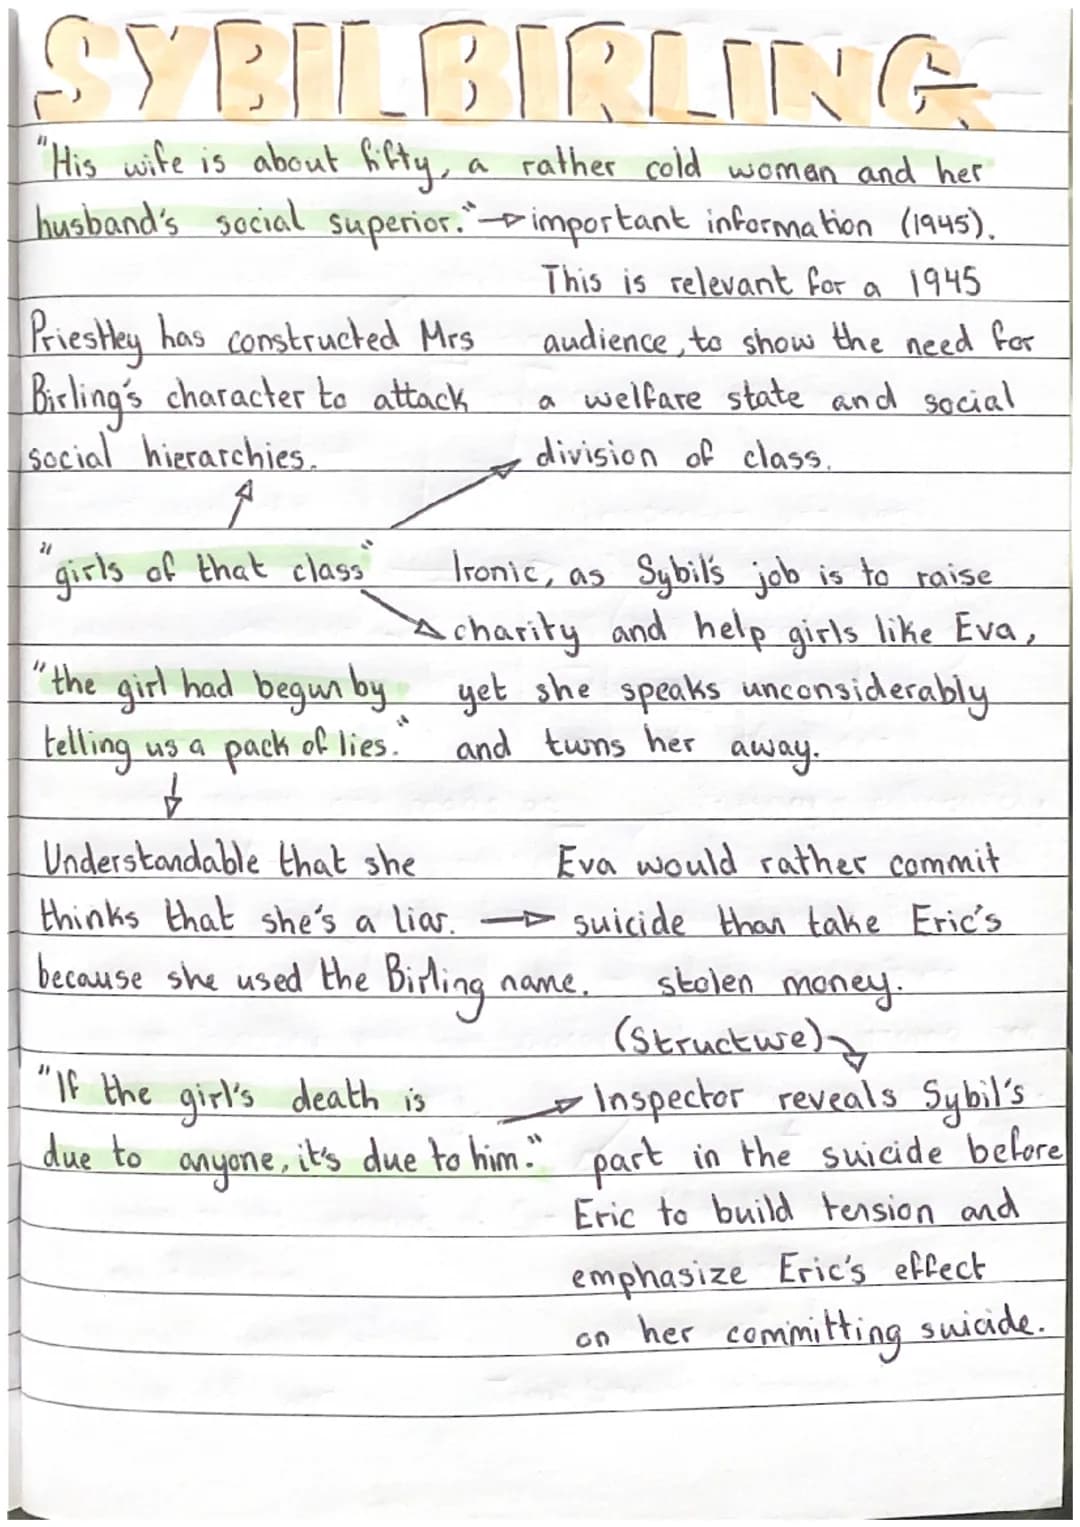 SYBIL BIRLING
"His wife is about fifty, a rather cold woman and her
husband's social superior." → important information (1945).
This is relevant for a 1945
audience, to show the need for
a welfare state and social
division of class.
Priestley has constructed Mrs
Birling's character to attack
social hierarchies.
"girls of that class"
Ironic, as Sybil's job is to raise
charity and help girls like Eva,
yet she speaks unconsiderably
and turns her away.
"the girl had begun by
telling us a pack of lies."
Understandable that she
thinks that she's a liar. →
because she used the Birling name.
Eva would rather commit
suicide than take Eric's
stolen money.
(Structure)
"If the girl's death is
due to anyone, it's due to him."
Inspector reveals Sybil's
part in the suicide before
Eric to build tension and
emphasize Eric's effect
on her committing suicide.